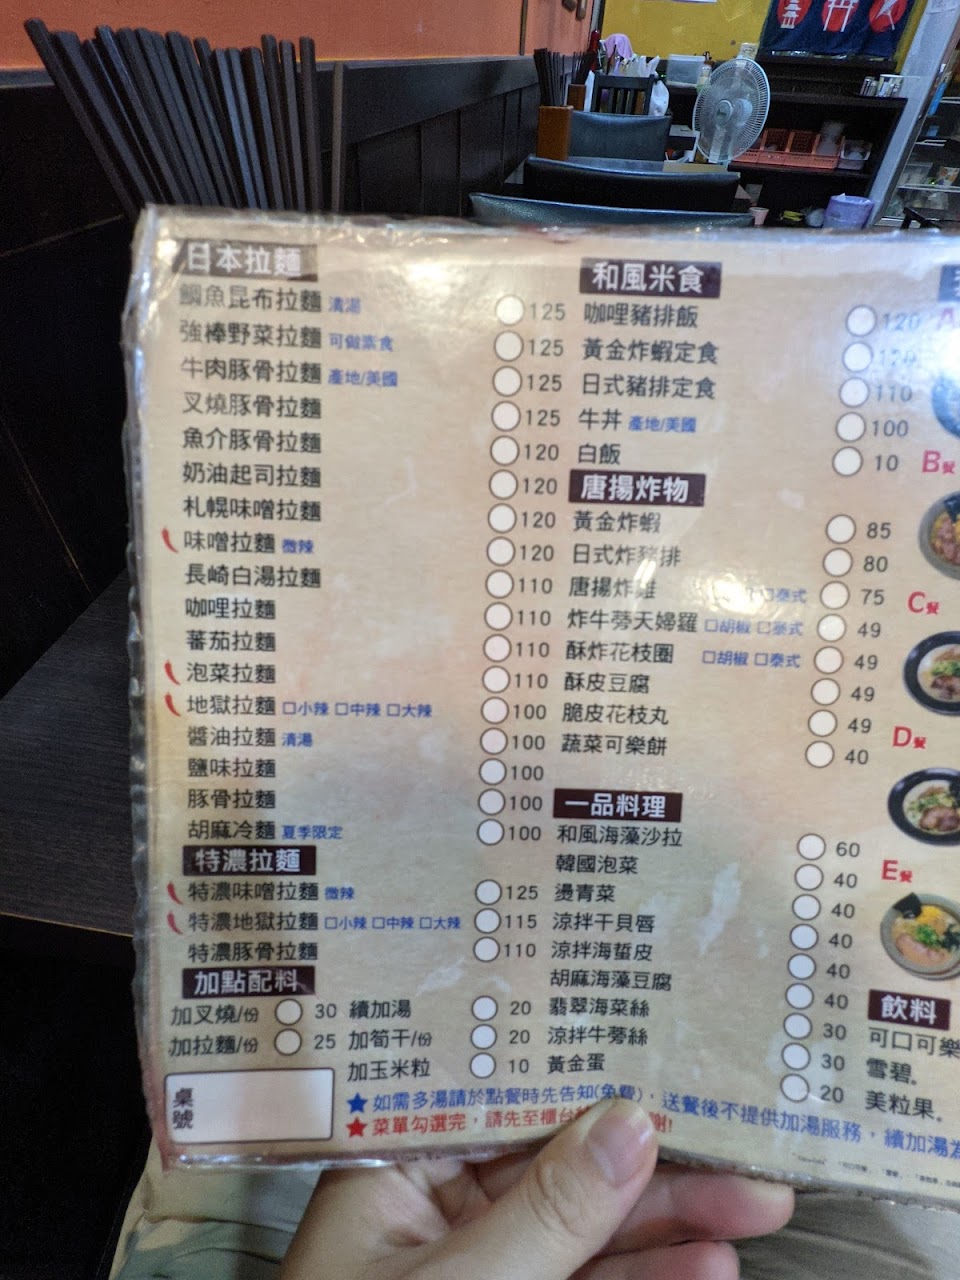 日本拉麵
鯛魚昆布拉麵 清湯 125
強棒野菜拉麵 可做素食 125
牛肉豚骨拉麵 產地/美國 125
叉燒豚骨拉麵 125
魚介豚骨拉麵 120
奶油起司拉麵 120
札幌味噌拉麵 120
味噌拉麵 微辣 120
長崎白湯拉麵 110
咖哩拉麵 110
蕃茄拉麵 110
泡菜拉麵 110
地獄拉麵 □小辣 □中辣 □大辣 100
醬油拉麵 清湯 100
鹽味拉麵 100
豚骨拉麵 100
胡麻冷麵 夏季限定 100
特濃拉麵
特濃味噌拉麵 微辣 125
特濃地獄拉麵 □小辣 □中辣 □大辣 115
特濃豚骨拉麵 110
加點配料
加叉燒/份 30 續加湯 20
加拉麵/份 25 加筍干/份 20
加玉米粒 10
桌號
★如需多湯請於點餐時先告知(免費)，送餐後不提供加湯服務，續加湯為
★菜單勾選完，請先至櫃台
和風米食
咖哩豬排飯 120
黃金炸蝦定食 120
日式豬排定食 110
牛丼 產地/美國 100
白飯 10
唐揚炸物
黃金炸蝦 85
日式炸豬排 80
唐揚炸雞 □泰式 75
炸牛蒡天婦羅 □胡椒 □泰式 49
酥炸花枝圈 □胡椒 □泰式 49
酥皮豆腐 49
脆皮花枝丸 49
蔬菜可樂餅 40
一品料理
和風海藻沙拉 60
韓國泡菜 40
燙青菜 40
涼拌干貝唇 40
涼拌海蜇皮 40
胡麻海藻豆腐 40
翡翠海菜絲 30
涼拌牛蒡絲 30
黃金蛋 20
A
B餐
C餐
D餐
E餐
飲料
可口可樂
雪碧.
美粒果.